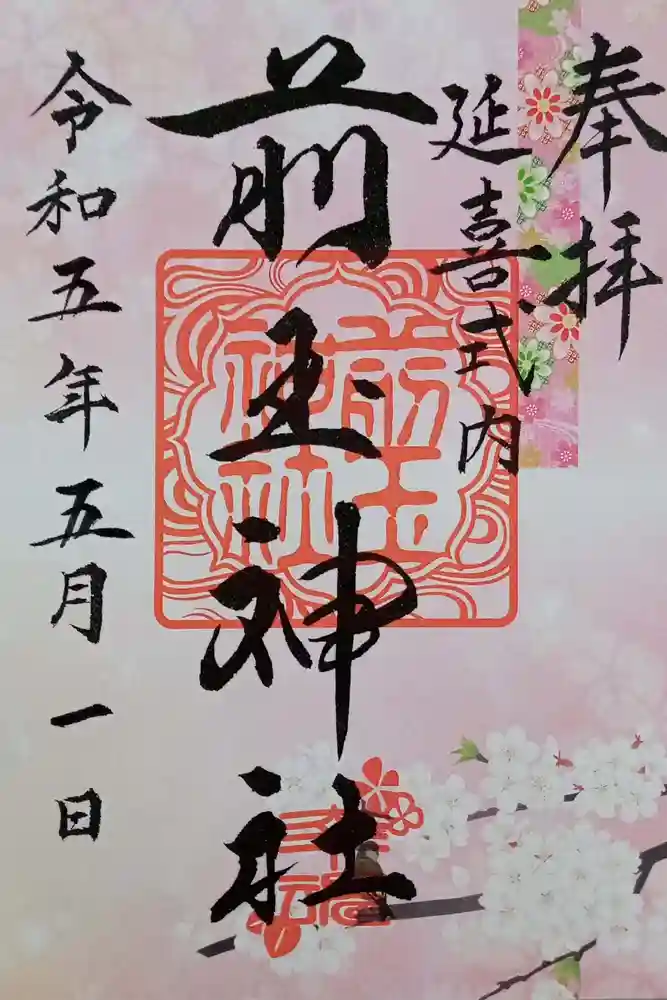 奉拝
延喜式内
前玉神社
前玉
神社
令和五年五月一日